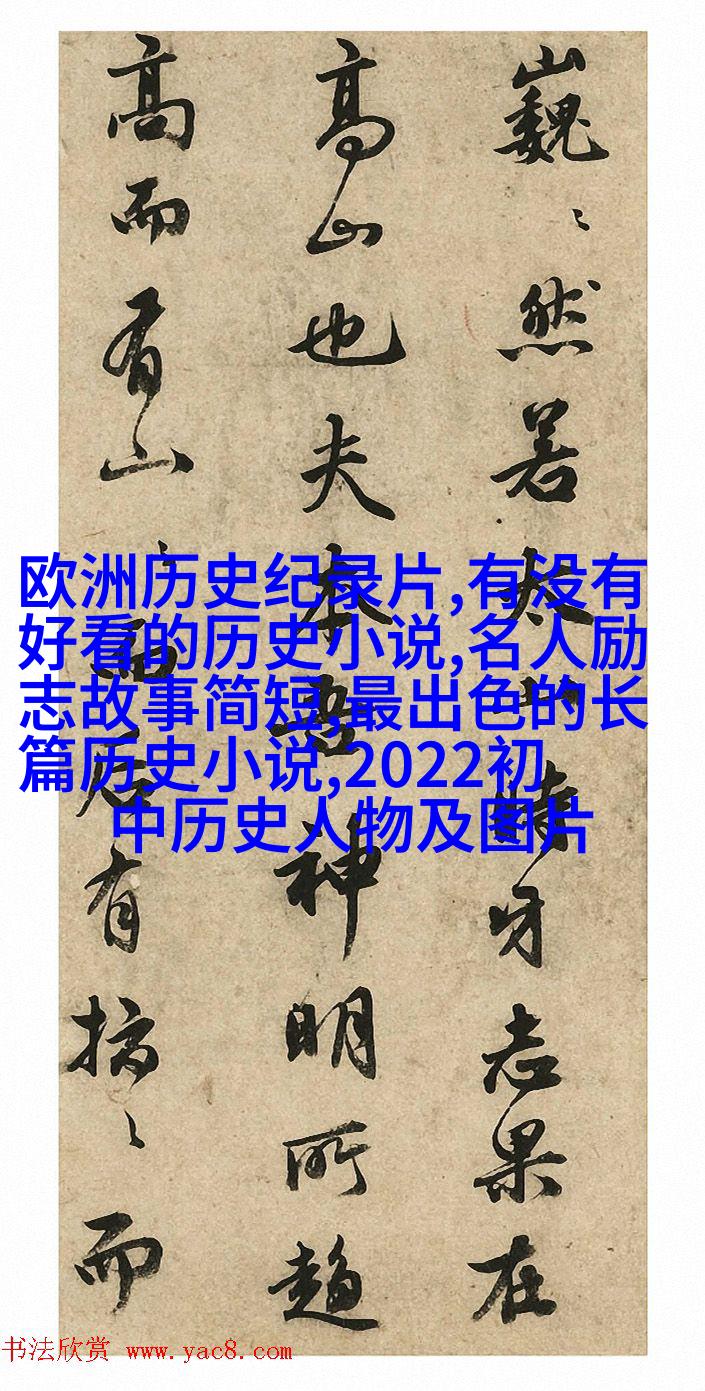 巍〻然若太山時牙志果在
高山也夫本吾神明所趨
高而有山〻而后有〻而
欧洲历史纪录片,有没有
好看的历史小说,名人励
志故事简短,最出色的长
篇历史小说,2022初
中历史人物及图片
书法欣赏 www.yac8.com